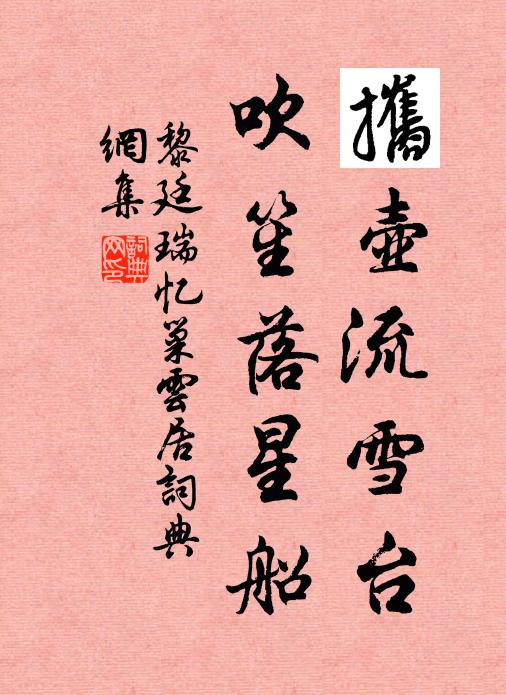 攜壺流雪台
吹笙落星船
黎廷瑞忆巢雲居詞典
網集
詞典網印